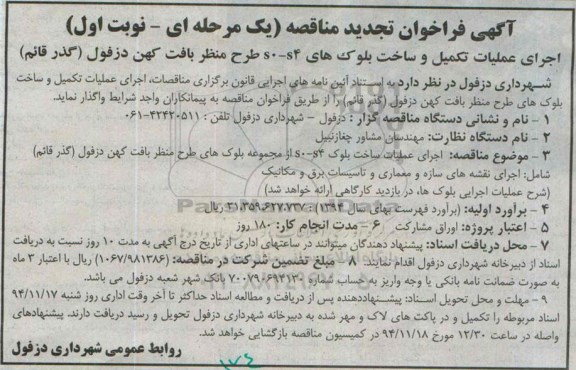 آگهی فراخوان تجدید مناقصه (یک مرحله ای - نوبت اول)
اجرای عملیات تکمیل و ساخت بلوک های s۰-s۴ طرح منظر بافت کهن دزفول (گذر قائم)
شهرداری دزفول در نظر دارد به استناد آئین نامه های اجرایی قانون برگزاری مناقصات، اجرای عملیات تکمیل و ساخت
بلوک های طرح منظر بافت کهن دزفول (گذر قائم) را از طریق فراخوان مناقصه به پیمانکاران واجد شرایط واگذار نماید.
۱ - نام و نشانی دستگاه مناقصه گزار : دزفول - شهرداری دزفول تلفن : ۴۲۴۲۰۵۱۱-۰۶۱
۲ - نام دستگاه نظارت: مهندسان مشاور چغازنبیل
۳ - موضوع مناقصه: اجرای عملیات ساخت بلوک s۰-s۴ از مجموعه بلوک های طرح منظر بافت کهن دزفول (گذر قائم)
شامل: اجرای نقشه های سازه و معماری و تاسیسات برق و مکانیک
(شرح عملیات اجرایی بلوک ها، در بازدید کارگاهی ارائه خواهد شد)
۴ - برآورد اولیه: (برآورد فهرست بهای سال ۱۳۹۴) ۳۱،۳۵۹،۶۲۷،۷۳۷ ریال
۵ - اعتبار پروژه: اوراق مشارکت ۶ - مدت انجام کار: ۱۸۰ روز
۷ - محل دریافت اسناد: پیشنهاد دهندگان میتوانند در ساعتهای اداری از تاریخ درج آگهی به مدت ۱۰ روز نسبت به دریافت
اسناد از دبیرخانه شهرداری دزفول اقدام نمایند. ۸ - مبلغ تضمین شرکت در مناقصه: (۱۰۶۷/۹۸۱۳۸۶) ریال با اعتبار ۳ ماه
به صورت ضمانت نامه بانکی یا وجه واریز به حساب شماره ۷۰۰۷۹۰۶۱۴۱۲۱ بانک شهر شعبه دزفول می باشد.
۹ - مهلت و محل تحویل اسناد: پیشنهاددهنده پس از دریافت و مطالعه اسناد حداکثر تا آخر وقت اداری روز شنبه ۹۴/۱۱/۱۷
اسناد مربوطه را تکمیل و در پاکت های لاک و مهر شده به دبیرخانه شهرداری دزفول تحویل و رسید دریافت دارند. پیشنهادهای
واصله در ساعت ۱۲/۳۰ مورخ ۹۴/۱۱/۱۸ در کمیسیون مناقصه بازگشایی خواهد شد.
روابط عمومی شهرداری دزفول
۱۷٤